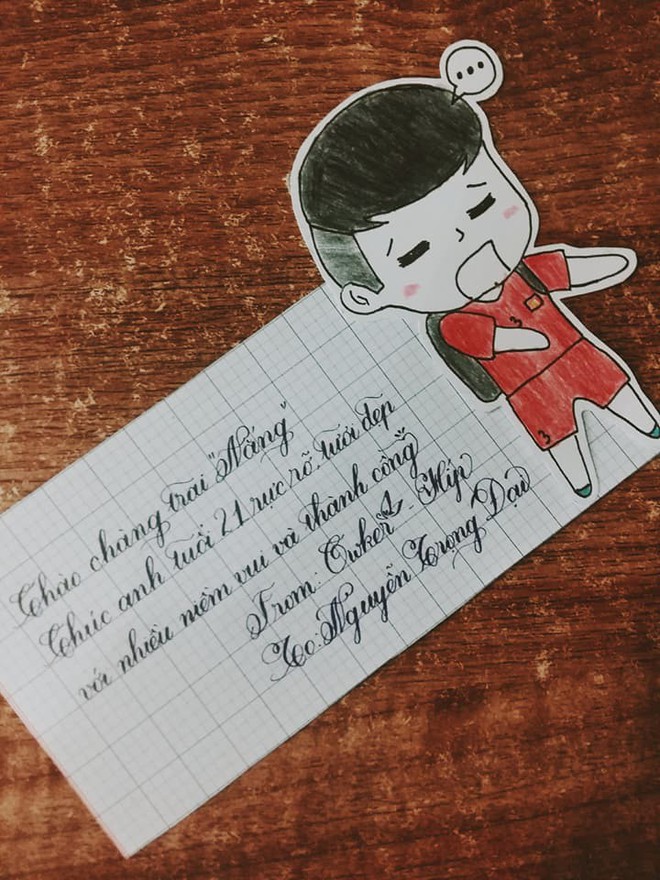 ...
Chào chàng trai "Nắng"
Chúc anh tuổi 21 rực rỡ, tươi đẹp
với nhiều niềm vui và thành công
From: Cwker - Híp
To: Nguyễn Trọng Đại
3
3